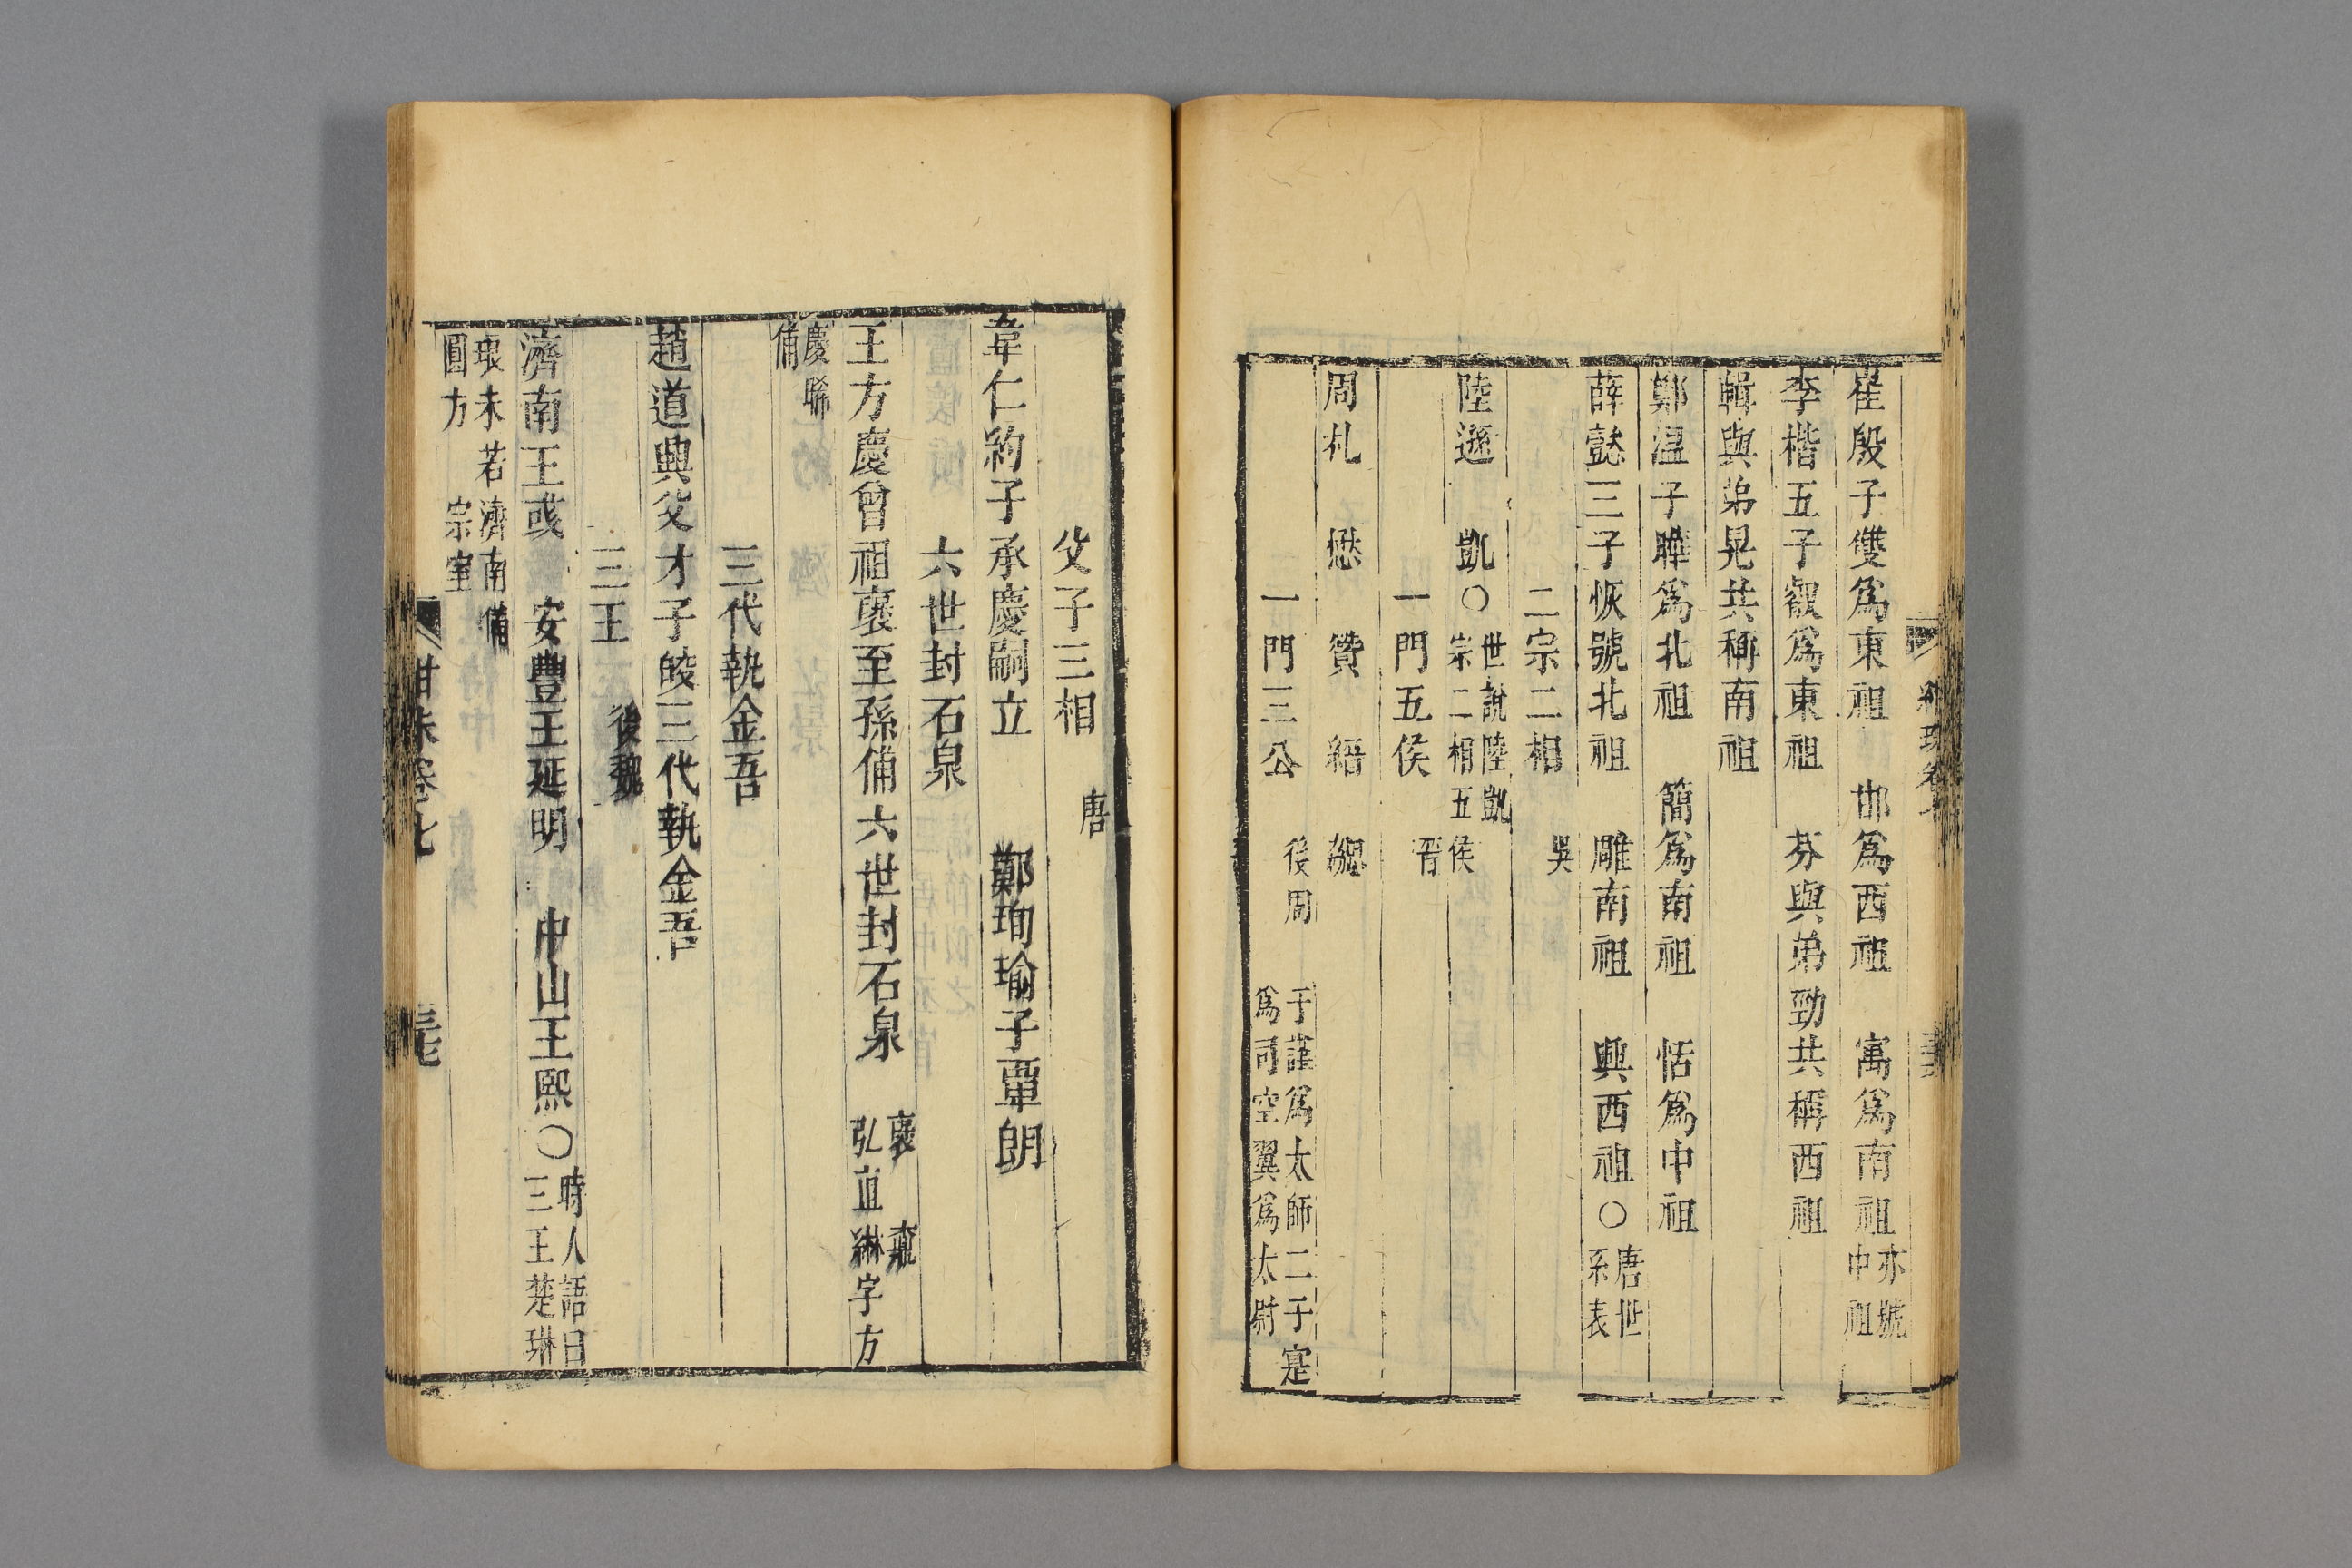 崔殷子雙爲東祖 邯爲西祖 寓爲南祖 亦號中祖
李楷五子叡爲東祖 芬與弟勁共稱西祖
輯與弟晃共稱南祖
鄭溫子曄爲北祖 簡爲南祖 恬爲中祖
薛懿三子恢號北祖 雕南祖 興西祖○唐世系表
二宗二相 吳
陸遜 凱○世說陸凱宗二相五侯
一門五侯 晉
周札 懋 贊 縉 勰
一門三公 後周 于謹爲太師二子寔爲司空翼爲太尉
父子三相 唐
韋仁約子承慶嗣立 鄭珣瑜子覃朗
六世封石泉
王方慶曾祖襃至孫俌六世封石泉 襃 鼒 弘直 綝字方
慶 晞 俌
三代執金吾
趙道興父才子皎三代執金吾
三王 後魏
濟南王彧 安豐王延明 中山王熙○時人語曰三王楚琳
琅未若濟南備圓方 宗室
卷七